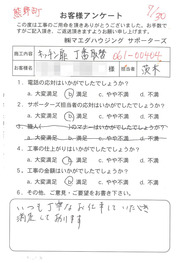 熊野町
9/30
お客様アンケート
この度は工事のご用命を頂きありがとうございました。お手数で
すがご記入頂き、ご返送頂きますようお願い申し上げます。
㈱マエダハウジング サポーターズ
施工内容 キッチン扉 丁番取替 061-00404
お名前 様 担当者 茨木
1. 電話の応対はいかがでしたでしょうか?
a. 大変満足 b. 満足 c. やや不満 d. 不満
2. サポーターズ担当者の応対はいかがでしたでしょうか?
a. 大変満足 b. 満足 c. やや不満 d. 不満
3. 職人( )のマナーはいかがでしたでしょうか?
a. 大変満足 b. 満足 c. やや不満 d. 不満
4. 工事の仕上がりはいかがでしたでしょうか?
a. 大変満足 b. 満足 c. やや不満 d. 不満
5.
a. 大変満足 b. 満足 c. やや不満 d. 不満
6. その他、ご意見・ご要望をお書き下さい。
いつも丁寧なお仕事していただき
満足しております